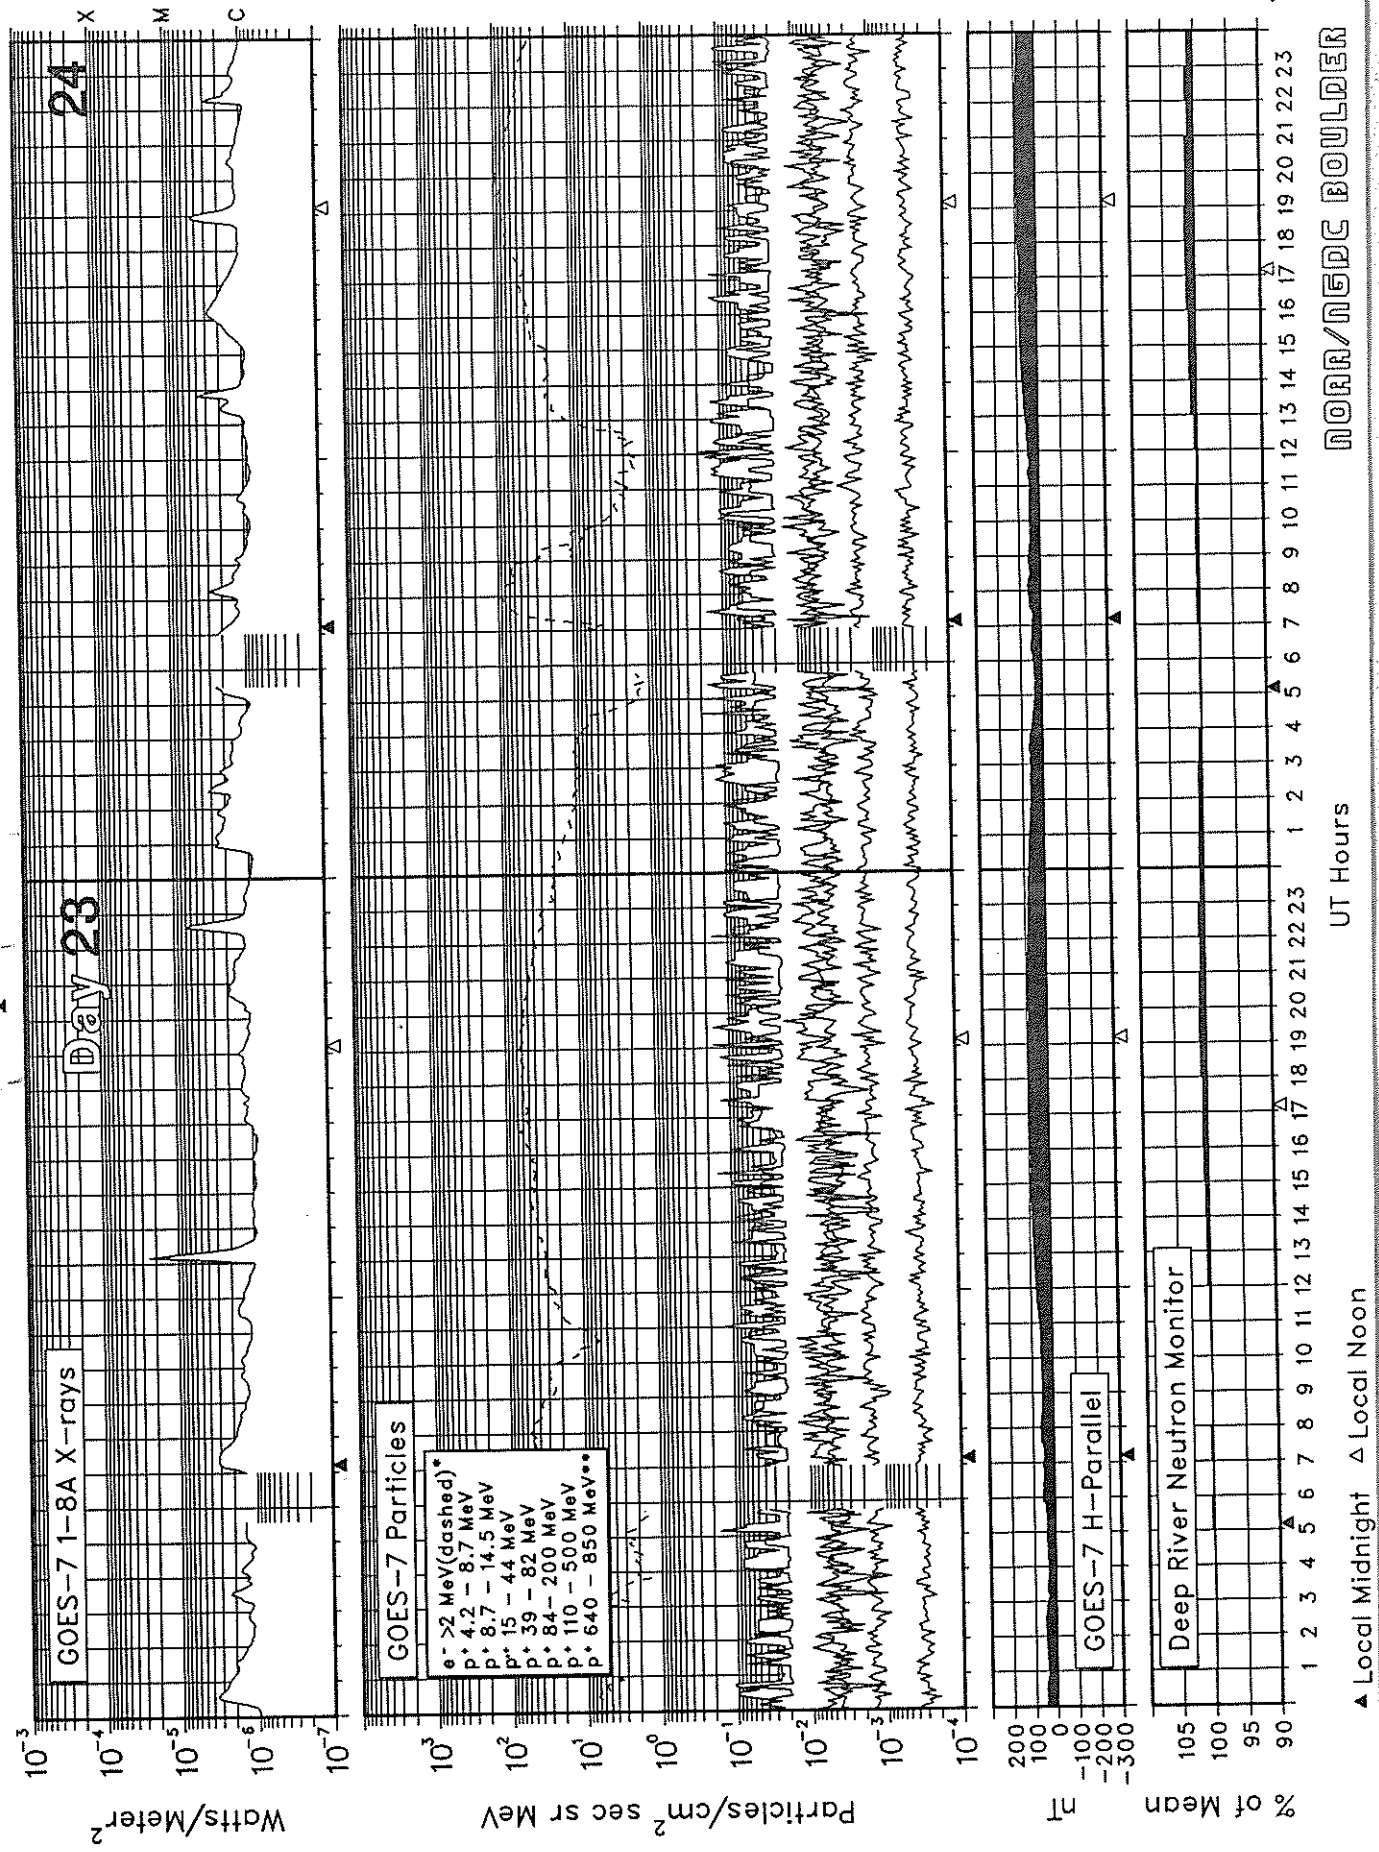 Day 23
24
GOES-7 1-8A X-rays
X
M
C
10⁻³
10⁻⁴
10⁻⁵
10⁻⁶
10⁻⁷
Watts/Meter²
GOES-7 Particles
e⁻ >2 MeV(dashed)*
p⁺ 4.2 - 8.7 MeV
p⁺ 8.7 - 14.5 MeV
p⁺ 15 - 44 MeV
p⁺ 39 - 82 MeV
p⁺ 84 - 200 MeV
p⁺ 110 - 500 MeV
p⁺ 640 - 850 MeV**
10³
10²
10¹
10⁰
10⁻¹
10⁻²
10⁻³
10⁻⁴
Particles/cm² sec sr MeV
GOES-7 H-Parallel
200
100
0
-100
-200
-300
nT
Deep River Neutron Monitor
105
100
95
90
% of Mean
1 2 3 4 5 6 7 8 9 10 11 12 13 14 15 16 17 18 19 20 21 22 23 1 2 3 4 5 6 7 8 9 10 11 12 13 14 15 16 17 18 19 20 21 22 23
UT Hours
▲ Local Midnight △ Local Noon
NOAA/NGDC BOULDER